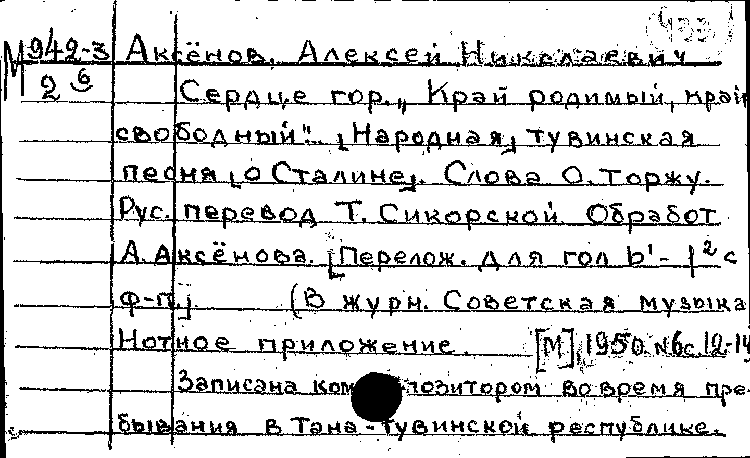 М942-3 Аксёнов, Алексей Николаевич
2 6 Сердце гор. „Край родимый, край
свободный".. [Народная] тувинская
песня [о Сталине]. Слова О. Торжу.
Рус. перевод Т. Сикорской Обработ
А. Аксёнова. [Перелож. для гол b¹ - f² с
ф-п.] (В журн. Советская музыка
Нотное приложение. [М], 1950 №6 с. 12-14
Записана композитором во время пре-
бывания в Тана-Тувинской республике.